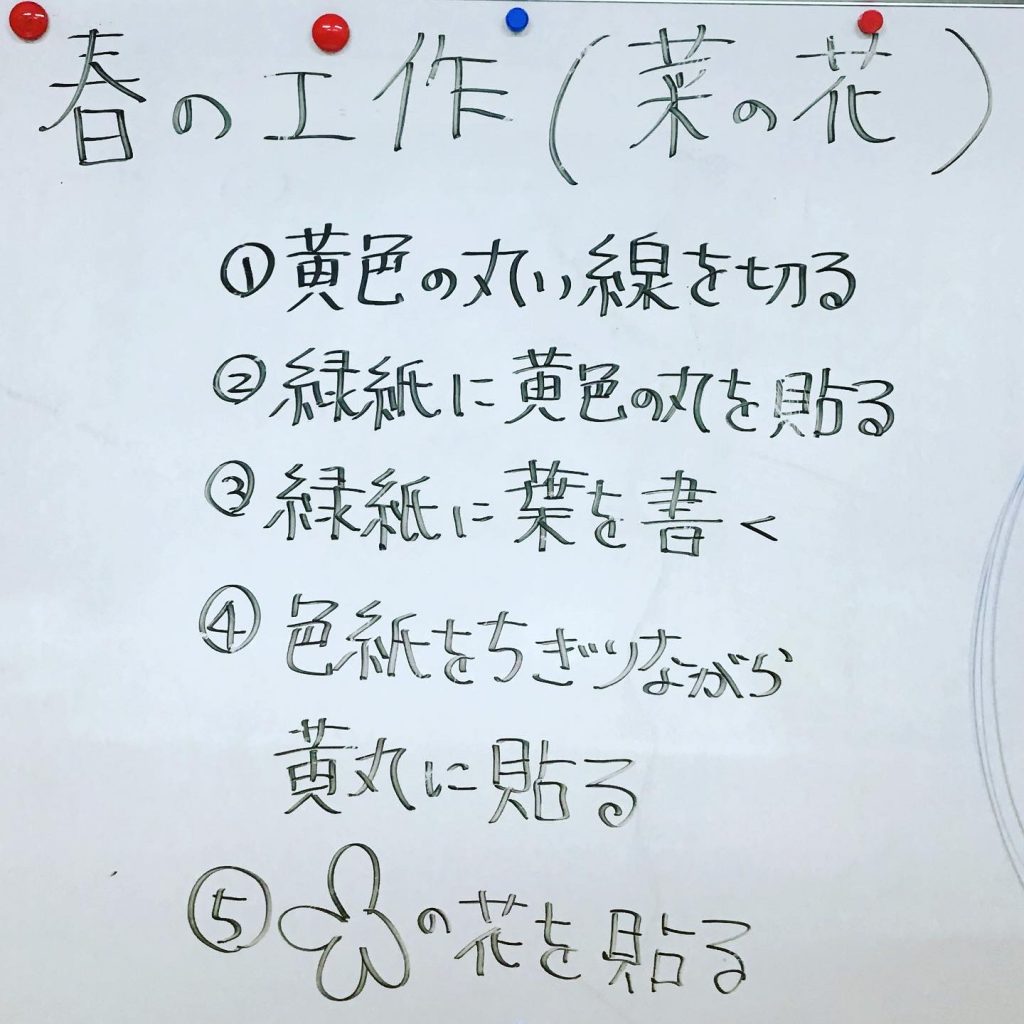 春の工作(菜の花)
①黄色の丸い線を切る
②緑紙に黄色の丸を貼る
③緑紙に葉を書く
④色紙をちぎりながら
黄丸に貼る
⑤の花を貼る